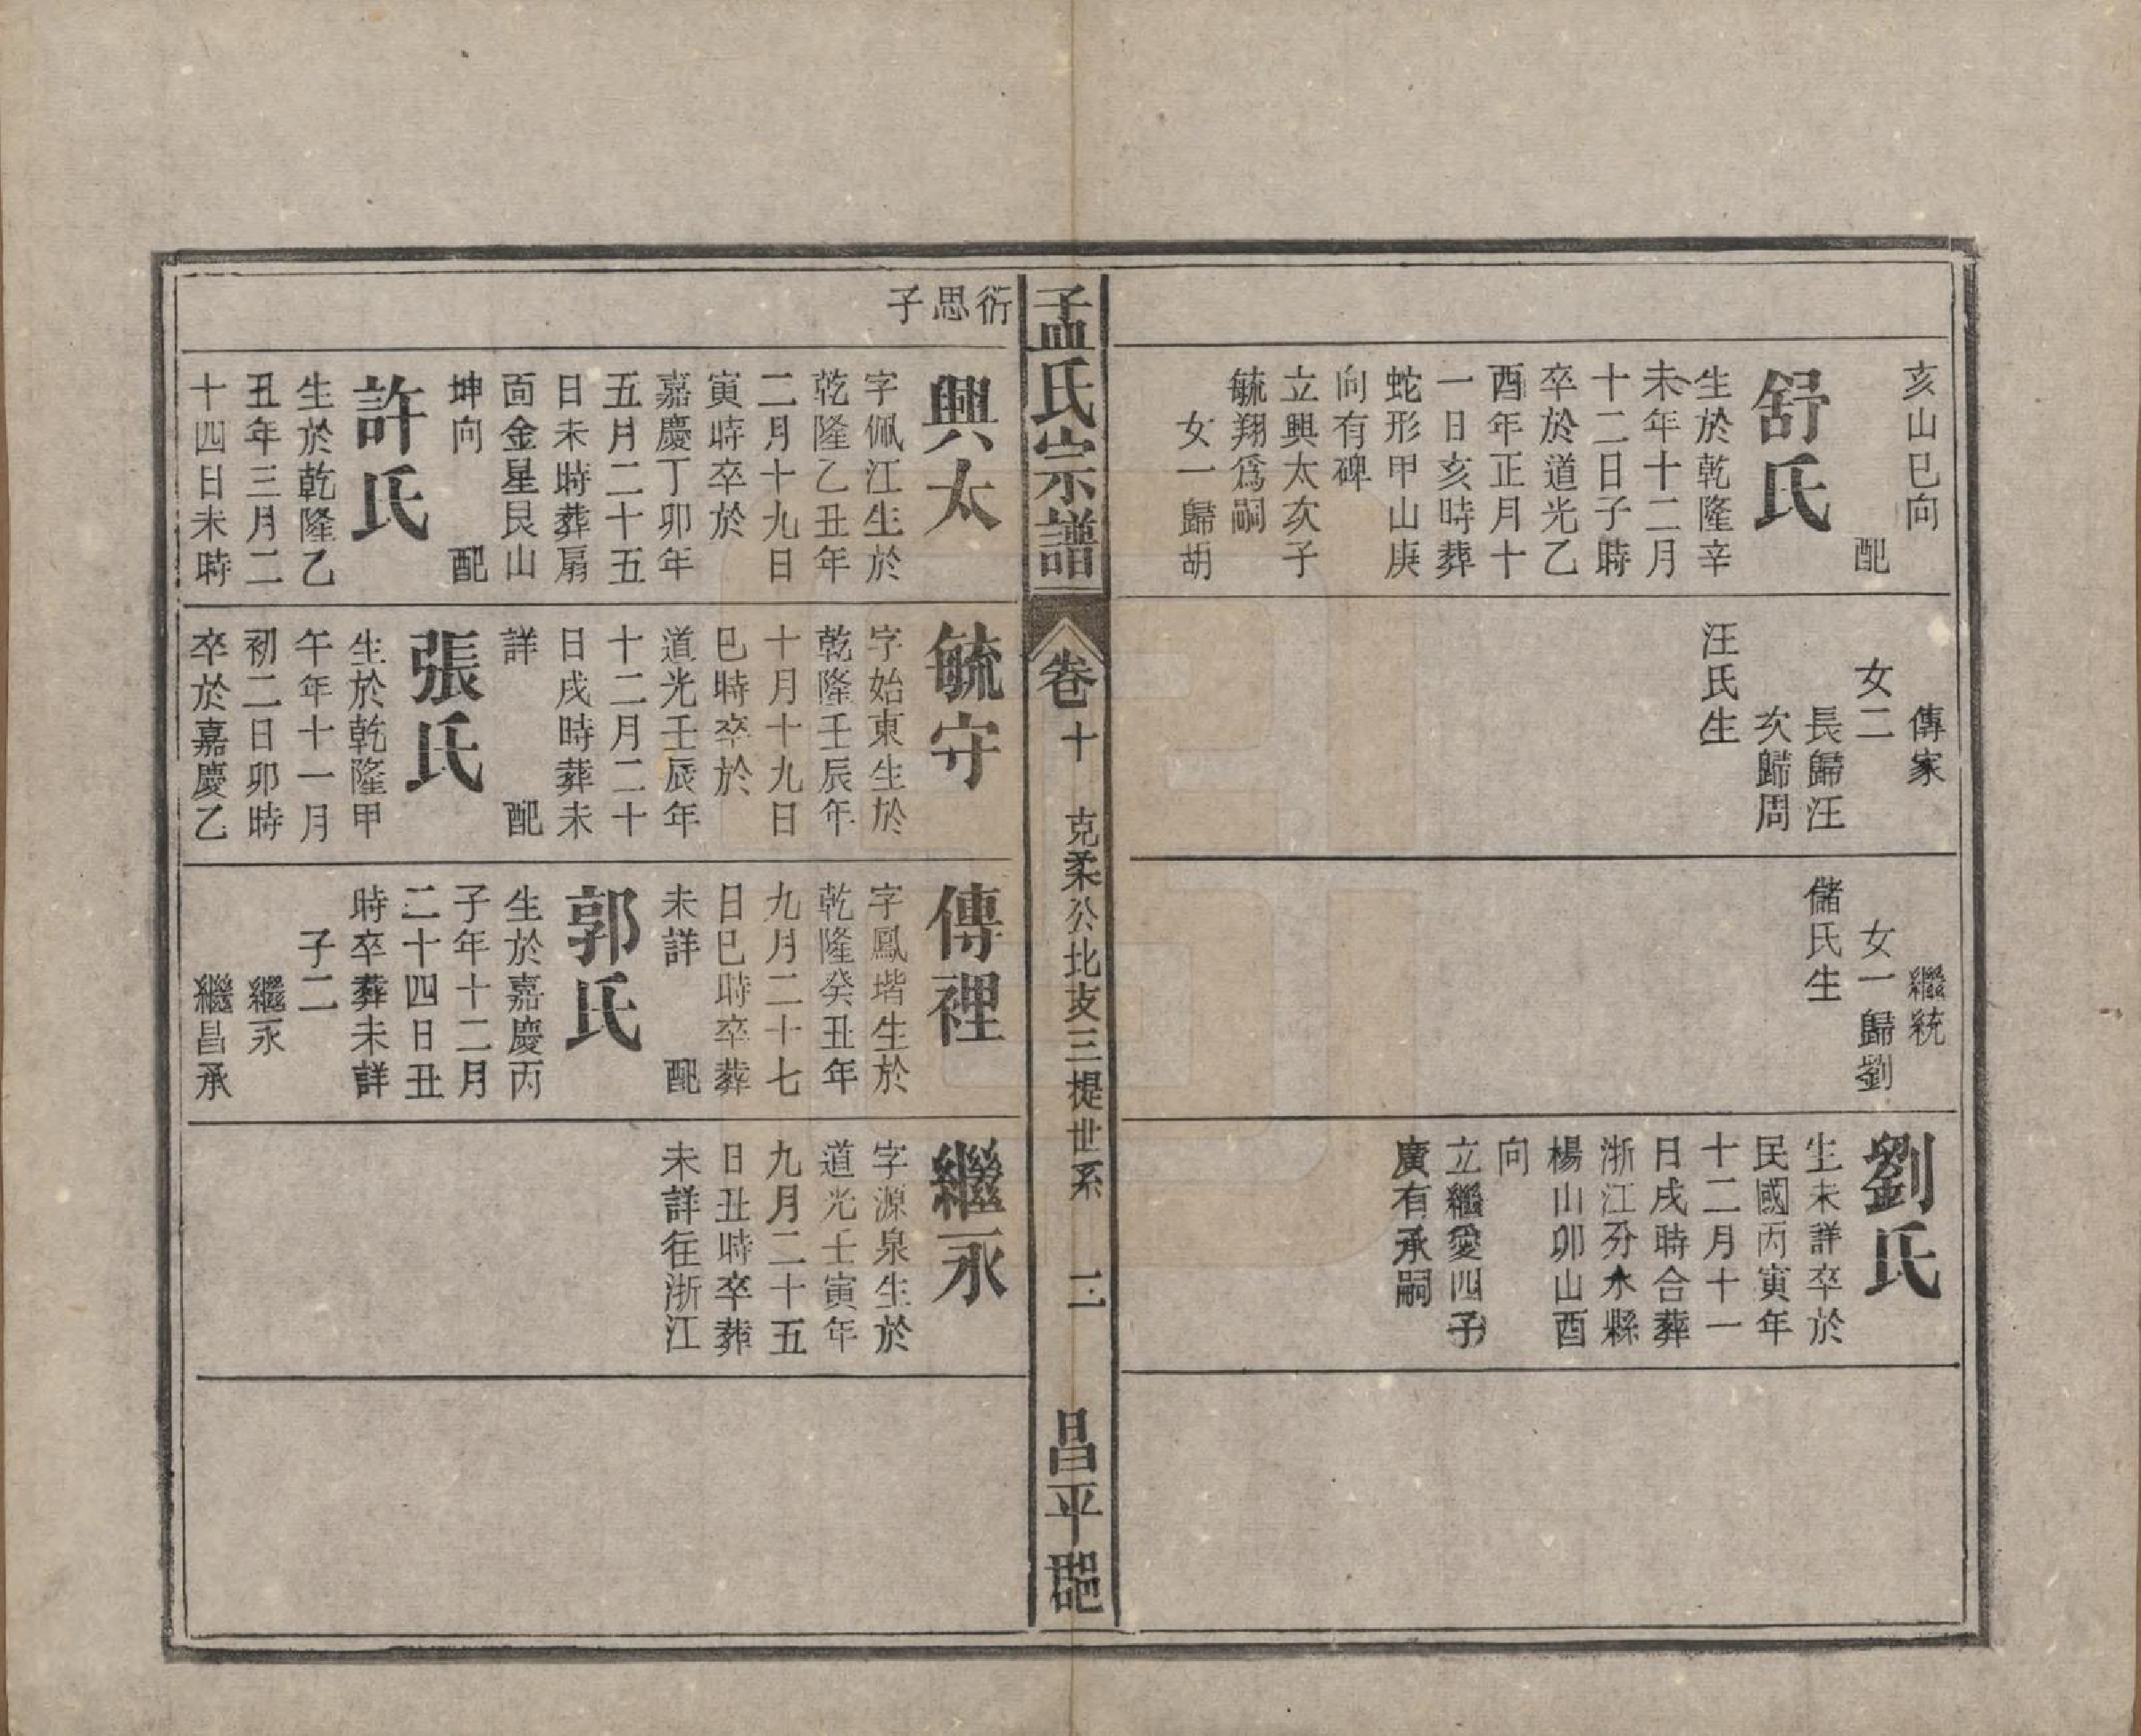 亥山巳向
配
舒氏
生於乾隆辛
未年十二月
十二日子時
卒於道光乙
酉年正月十
一日亥時葬
蛇形甲山庚
向有碑
立興太次子
毓翔爲嗣
女一歸胡
傳家
女二
長歸汪
次歸周
汪氏生
繼統
女一歸劉
儲氏生
劉氏
生未詳卒於
民國丙寅年
十二月十一
日戌時合葬
浙江分水縣
楊山卯山酉
向
立繼愛四子
廣有承嗣
孟氏宗譜
卷十
克柔公比支三提世系
二
昌平郡
衍思子
興太
字佩江生於
乾隆乙丑年
二月十九日
寅時卒於
嘉慶丁卯年
五月二十五
日未時葬扇
面金星艮山
坤向
配
許氏
生於乾隆乙
丑年三月二
十四日未時
毓守
字始東生於
乾隆壬辰年
十月十九日
巳時卒於
道光壬辰年
十二月二十
日戌時葬未
詳
配
張氏
生於乾隆甲
午年十一月
初二日卯時
卒於嘉慶乙
傳裡
字鳳堦生於
乾隆癸丑年
九月二十七
日巳時卒葬
未詳
配
郭氏
生於嘉慶丙
子年十二月
二十四日丑
時卒葬未詳
子二
繼永
繼昌承
繼永
字源泉生於
道光壬寅年
九月二十五
日丑時卒葬
未詳在浙江